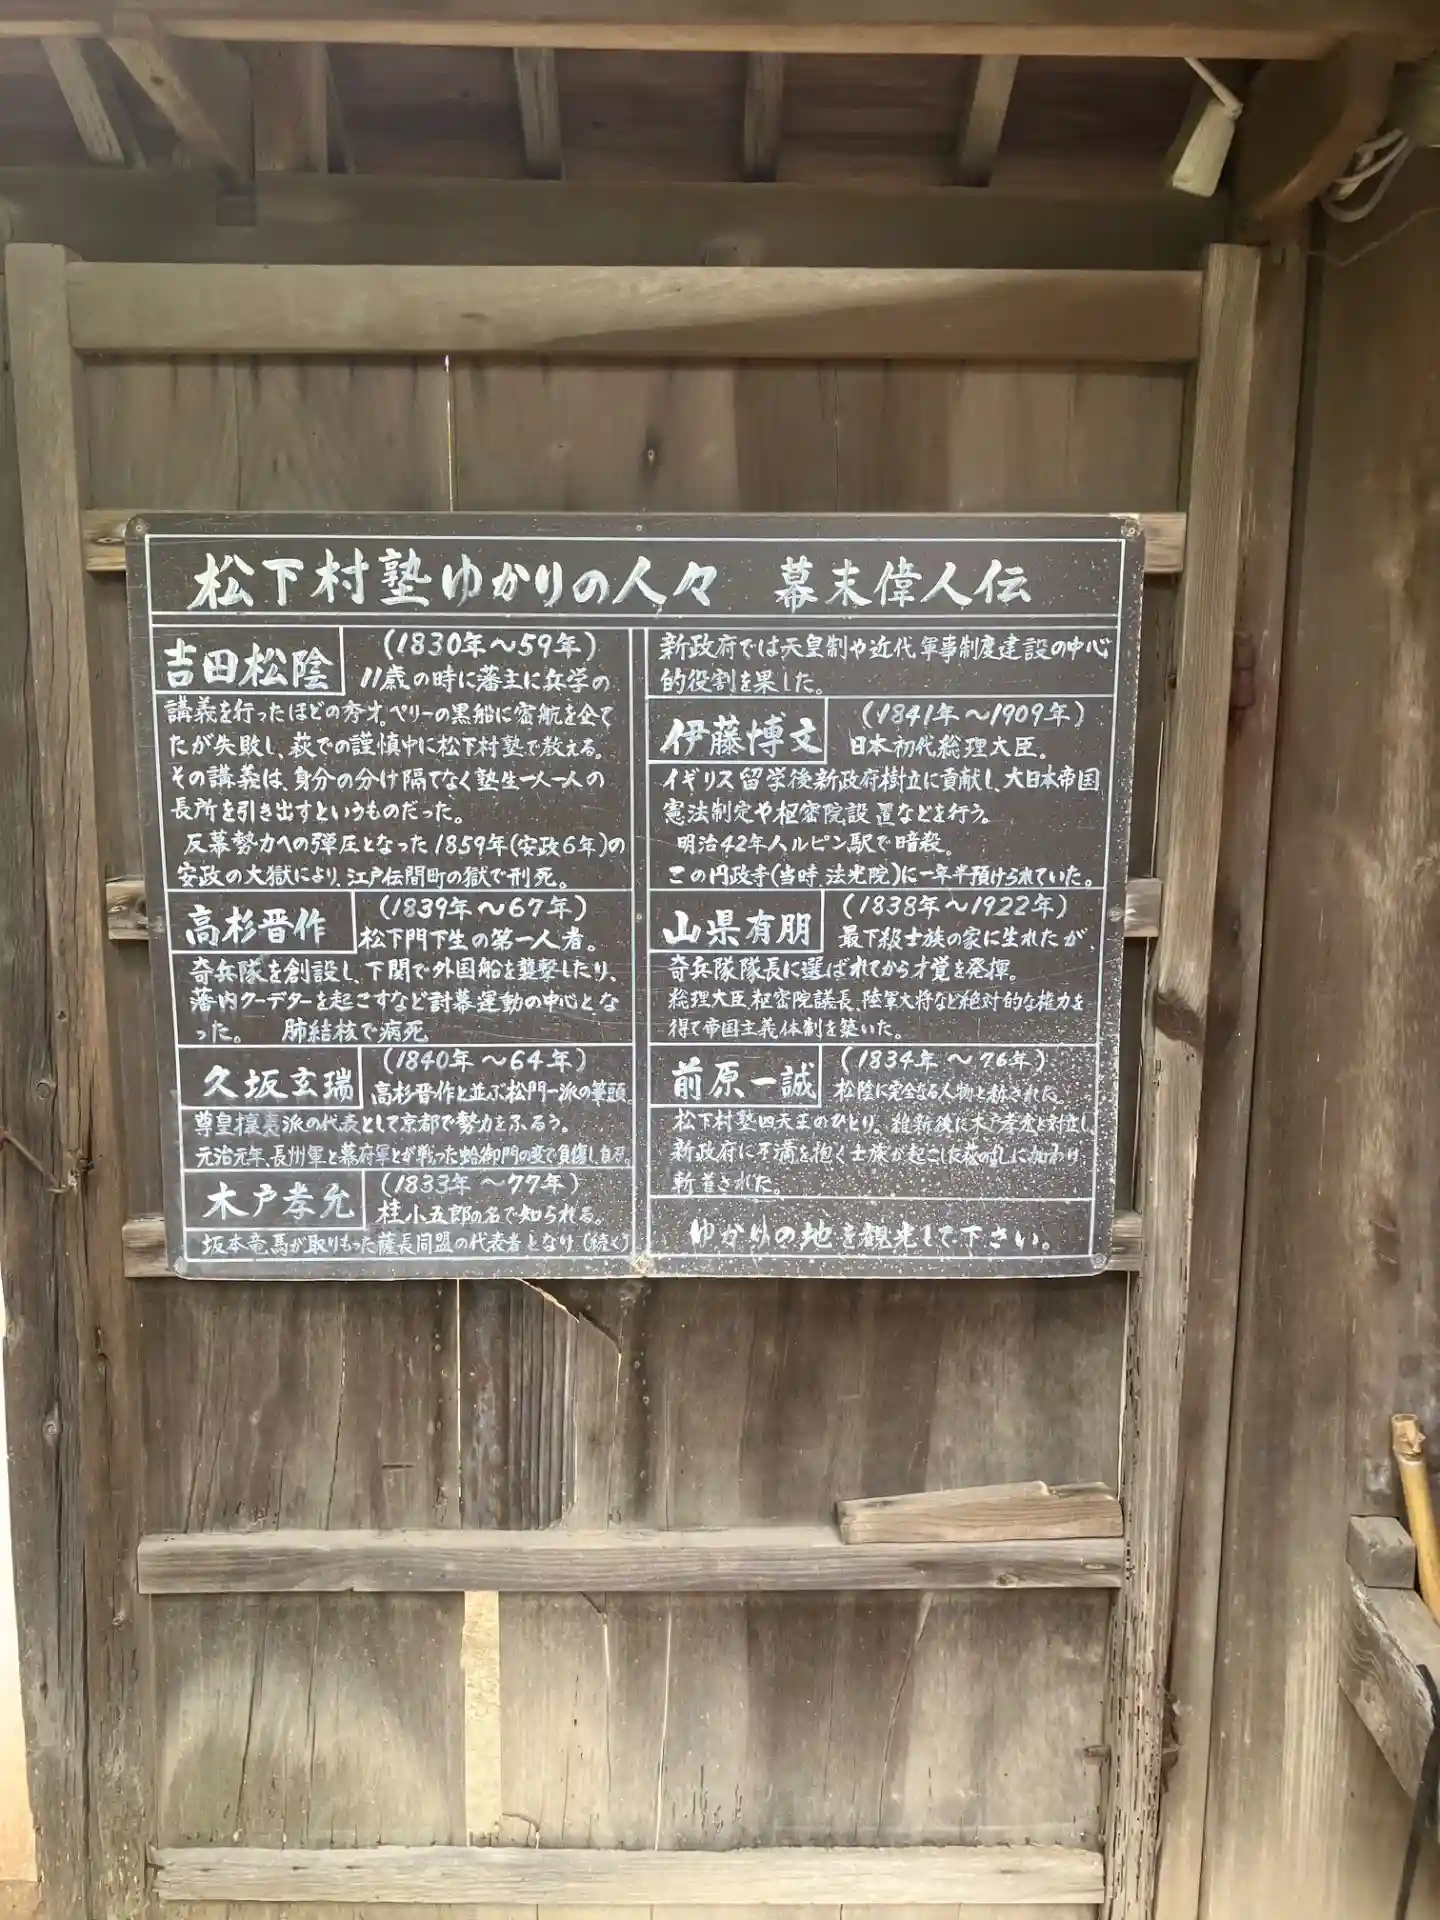 松下村塾ゆかりの人々　幕末偉人伝
吉田松陰
(1830年～59年)
11歳の時に藩主に兵学の
講義を行ったほどの秀才。ペリーの黒船に密航を企て
たが失敗し、萩での謹慎中に松下村塾で教える。
その講義は、身分の分け隔てなく塾生一人一人の
長所を引き出すというものだった。
反幕勢力への弾圧となった1859年(安政6年)の
安政の大獄により、江戸伝間町の獄で刑死。
高杉晋作
(1839年～67年)
松下門下生の第一人者。
奇兵隊を創設し、下関で外国船を襲撃したり、
藩内クーデターを起こすなど討幕運動の中心とな
った。　肺結核で病死
久坂玄瑞
(1840年～64年)
高杉晋作と並ぶ松門一派の筆頭。
尊皇攘夷派の代表として京都で勢力をふるう。
元治元年、長州軍と幕府軍とが戦った蛤御門の変で負傷し、自刃。
木戸孝允
(1833年～77年)
桂小五郎の名で知られる。
坂本竜馬が取りもった薩長同盟の代表者となり(続く)
新政府では天皇制や近代軍事制度建設の中心
的役割を果した。
伊藤博文
(1841年～1909年)
日本初代総理大臣。
イギリス留学後新政府樹立に貢献し、大日本帝国
憲法制定や枢密院設置などを行う。
明治42年ハルピン駅で暗殺。
この円政寺(当時、法光院)に一年半預けられていた。
山県有朋
(1838年～1922年)
最下級士族の家に生れたが、
奇兵隊隊長に選ばれてから才覚を発揮。
総理大臣、枢密院議長、陸軍大将など絶対的な権力を
得て帝国主義体制を築いた。
前原一誠
(1834年～76年)
松陰に完全なる人物と称された。
松下村塾四天王のひとり。維新後に木戸孝允と対立し、
新政府に不満を抱く士族が起こした萩の乱に加わり
斬首された。
ゆかりの地を観光して下さい。